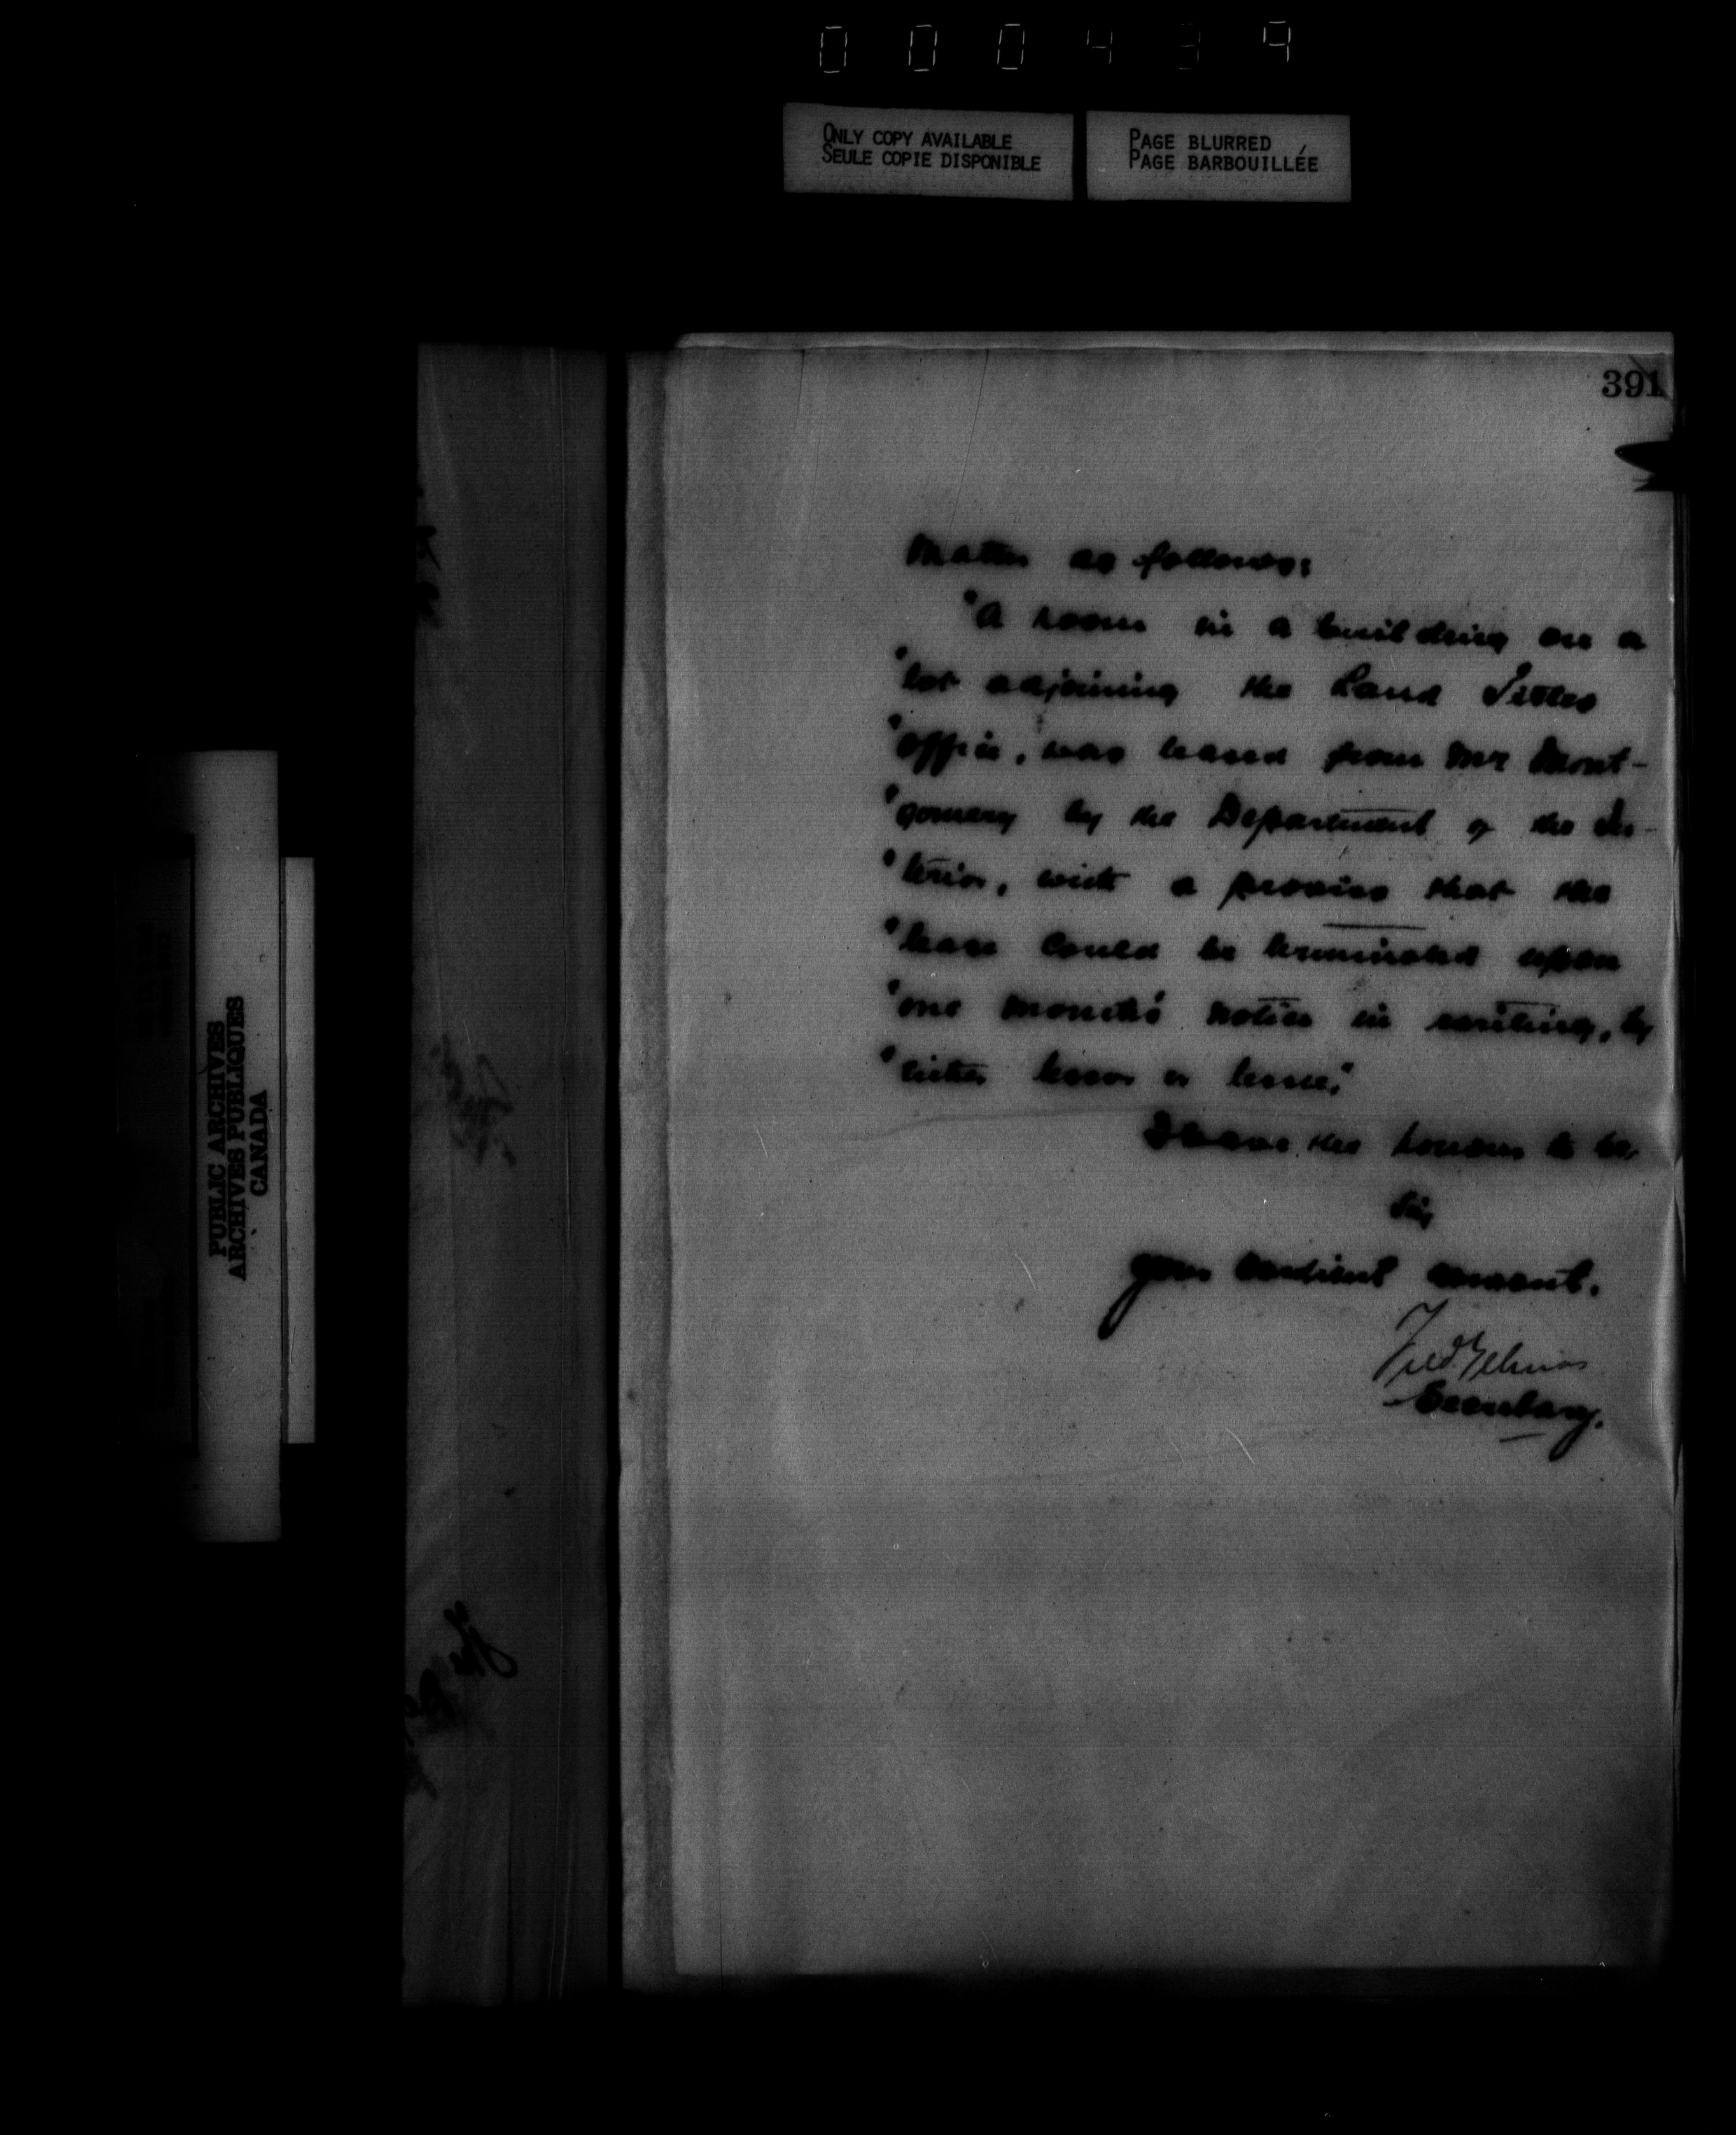 000439
ONLY COPY AVAILABLE
SEULE COPIE DISPONIBLE
PAGE BLURRED
PAGE BARBOUILLÉE
391
matter as follows:
"A room in a building on a
"lot adjoining the Land Titles
"office, was leased from Mr Mont-
"gomery by the Department of the In-
"terior, with a proviso that the
"lease could be terminated upon
"one month's notice in writing, by
"either lessor or lessee."
I have the honour to be,
Sir,
Your obedient servant.
Fred Gelinas
Secretary.
PUBLIC ARCHIVES
ARCHIVES PUBLIQUES
CANADA